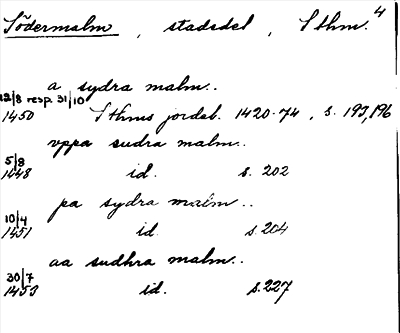 Södermalm , stadsdel , Sthm. 4
a sydra malm..
12/8 resp. 31/10
1450 Sthms jordeb. 1420-74 , s. 193,196
vppa sudra malm..
5/8
1448 id. s. 202
pa sydra malm..
10/4
1451 id. s. 204
aa sudhra malm..
30/7
1453 id. s. 227